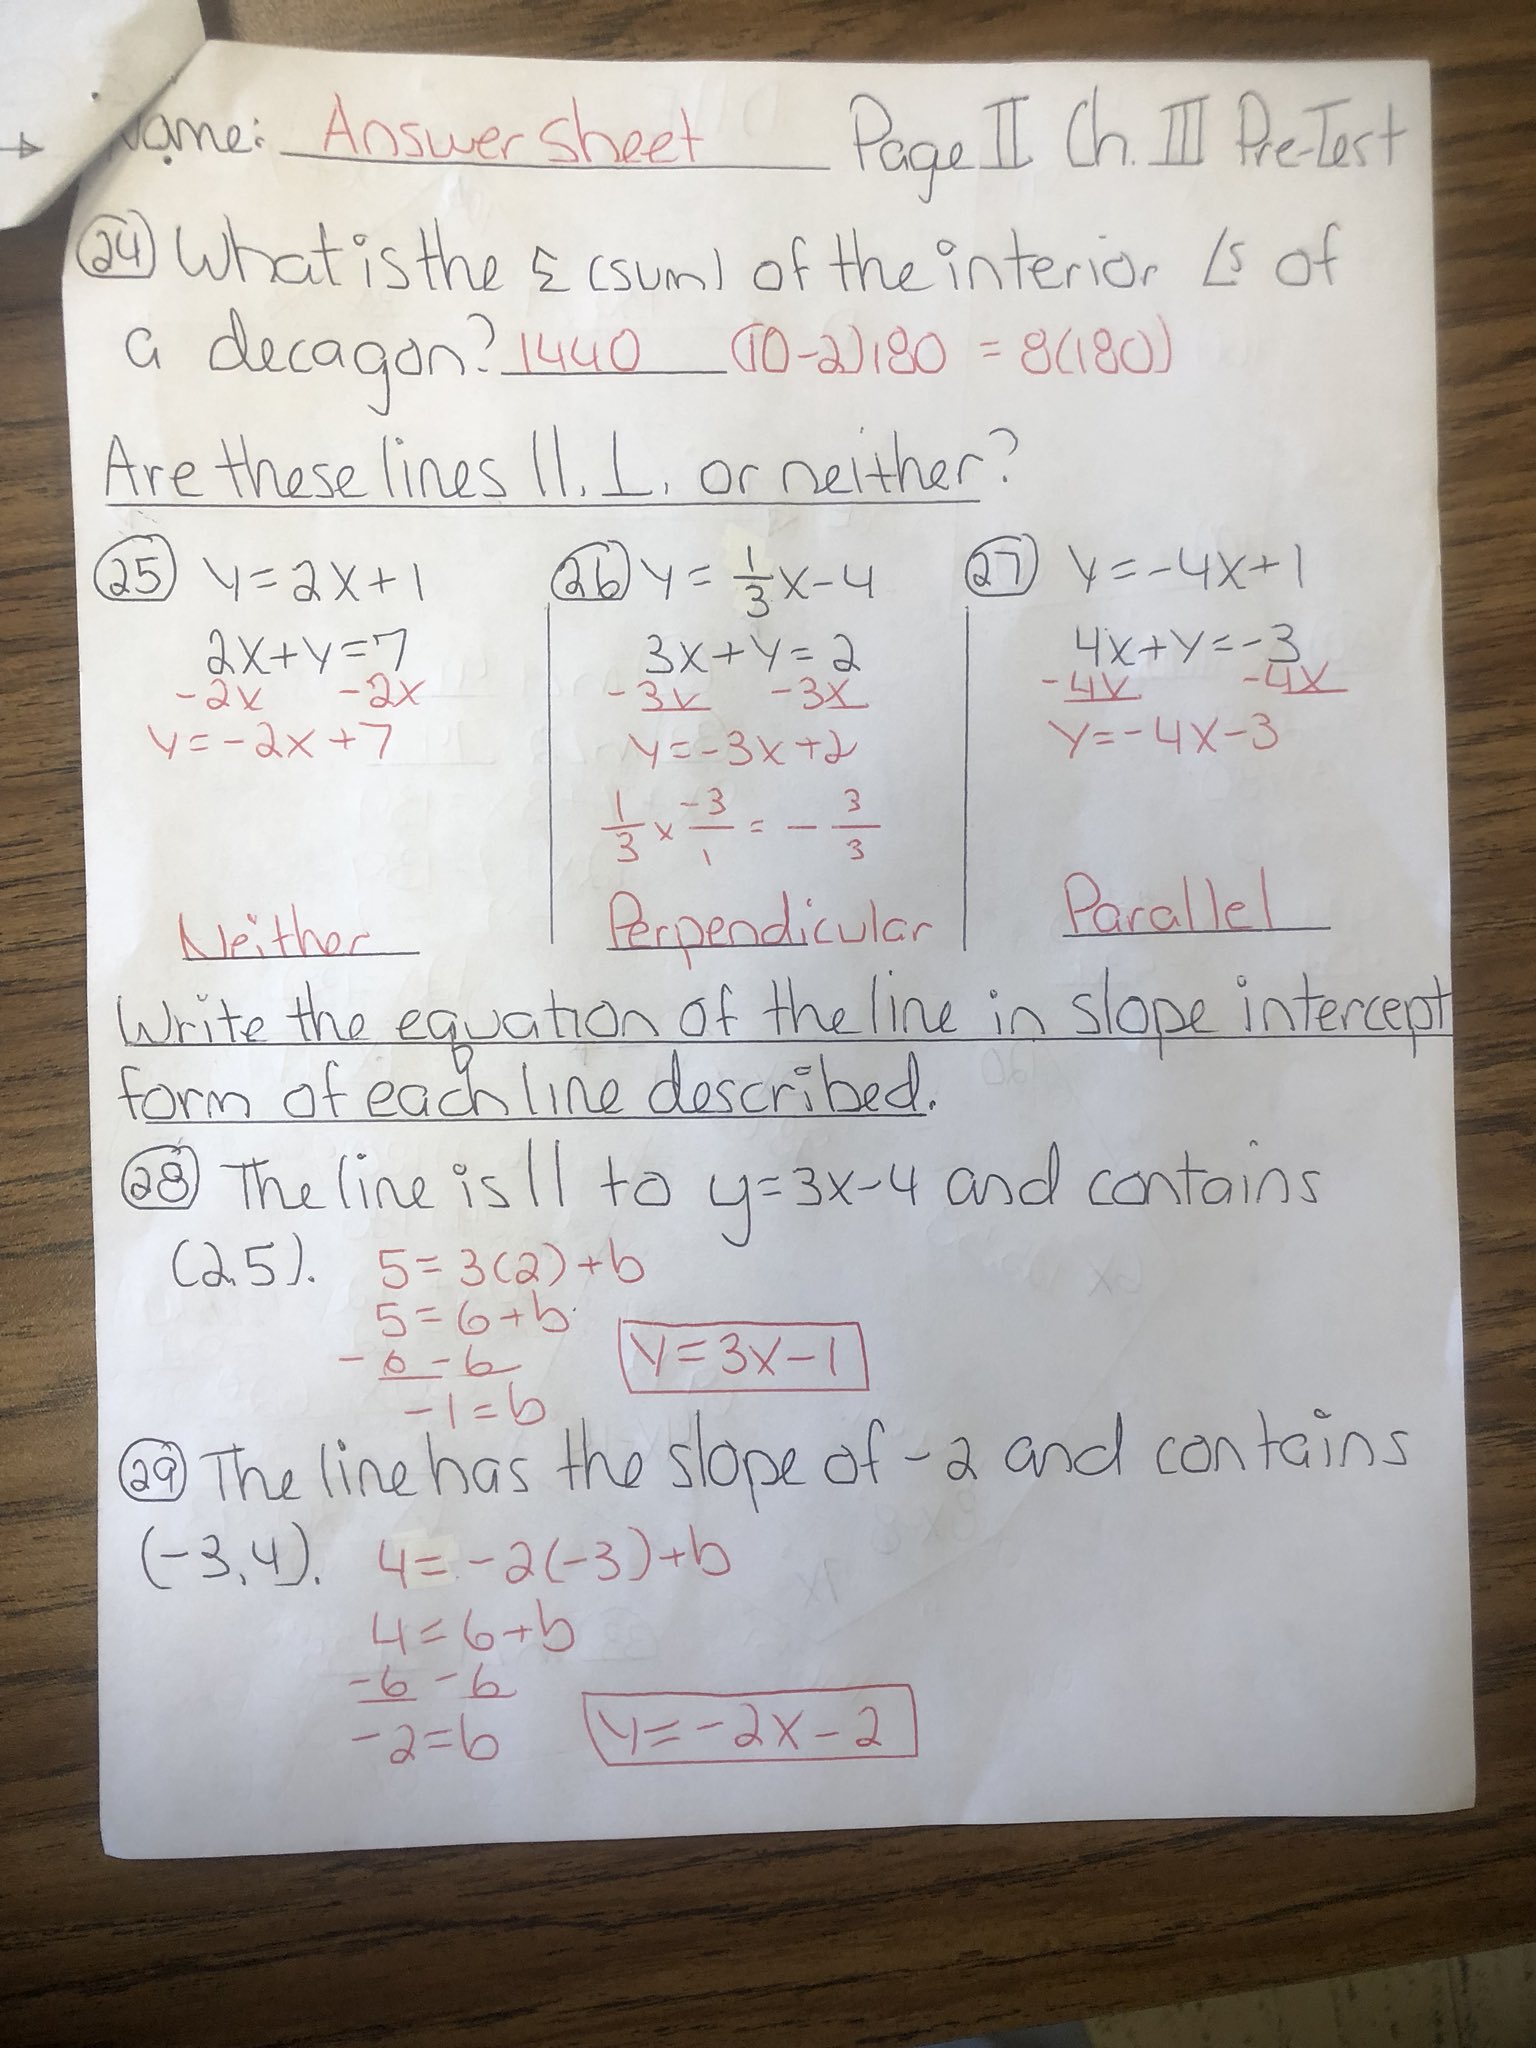 Name: Answer Sheet Page II Ch. III Pre-Test
24 What is the Σ (sum) of the interior ∠s of
a decagon? 1440 (10-2)180 = 8(180)
Are these lines ||, ⊥, or neither?
25 y=2x+1
2x+y=7
-2x -2x
y=-2x+7
Neither
26 y=1/3x-4
3x+y=2
-3x -3x
y=-3x+2
1/3 x -3/1 = - 3/3
Perpendicular
27 y=-4x+1
4x+y=-3
-4x -4x
y=-4x-3
Parallel
Write the equation of the line in slope intercept
form of each line described.
28 The line is || to y=3x-4 and contains
(2,5). 5=3(2)+b
5=6+b
-6 -6
-1=b
y=3x-1
29 The line has the slope of -2 and contains
(-3,4). 4=-2(-3)+b
4=6+b
-6 -6
-2=b
y=-2x-2